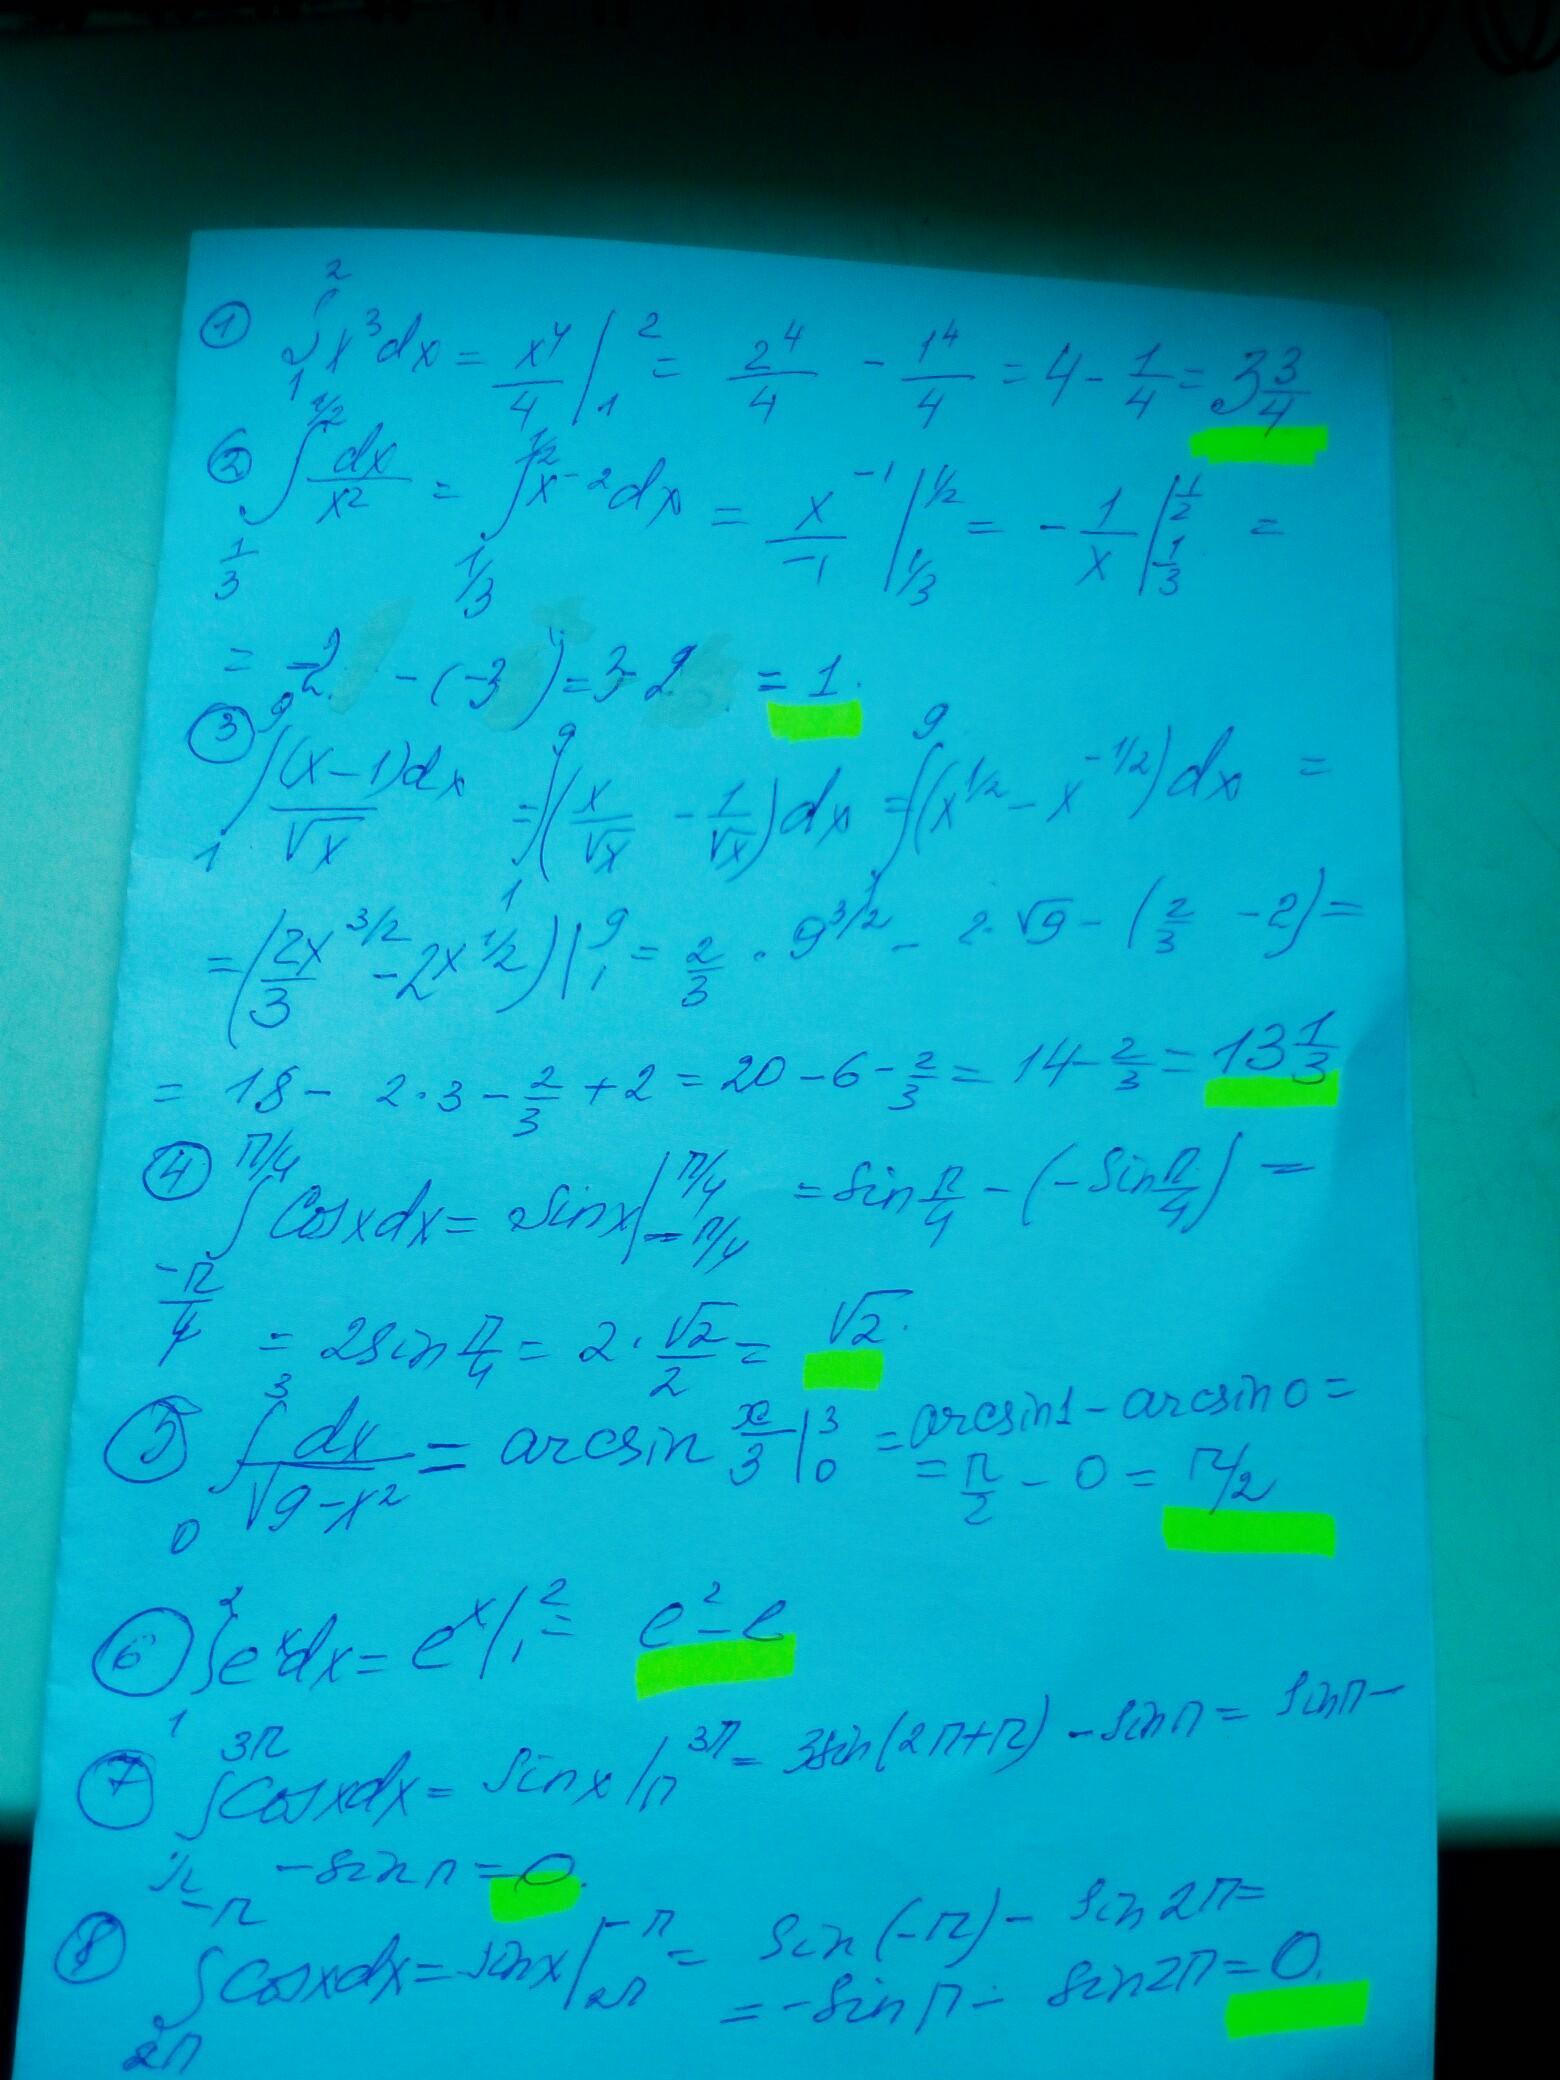 ① ∫₁² x³dx = x⁴/4 |₁² = 2⁴/4 - 1⁴/4 = 4 - 1/4 = 3 3/4
② ∫_{1/3}^{1/2} dx/x² = ∫_{1/3}^{1/2} x⁻²dx = x⁻¹/-1 |_{1/3}^{1/2} = -1/x |_{1/3}^{1/2} =
= -2 - (-3) = 3-2 = 1.
③ ∫₁⁹ (x-1)dx/√x = ∫₁⁹ (x/√x - 1/√x)dx = ∫₁⁹ (x^{1/2} - x^{-1/2})dx =
= (2x^{3/2}/3 - 2x^{1/2}) |₁⁹ = 2/3 · 9^{3/2} - 2·√9 - (2/3 - 2) =
= 18 - 2·3 - 2/3 + 2 = 20 - 6 - 2/3 = 14 - 2/3 = 13 1/3
④ ∫_{-π/4}^{π/4} cosxdx = sinx |_{-π/4}^{π/4} = sin π/4 - (-sin π/4) =
= 2sin π/4 = 2·√2/2 = √2.
⑤ ∫₀³ dx/√9-x² = arcsin x/3 |₀³ = arcsin1 - arcsin0 =
= π/2 - 0 = π/2
⑥ ∫₁² eˣdx = eˣ |₁² = e² - e
⑦ ∫_π^{3π} cosxdx = sinx |_π^{3π} = 3sin(2π+π) - sinπ = sinπ -
- sinπ = 0.
⑧ ∫_{2π}^{-π} cosxdx = sinx |_{2π}^{-π} = sin(-π) - sin2π =
= -sinπ - sin2π = 0.